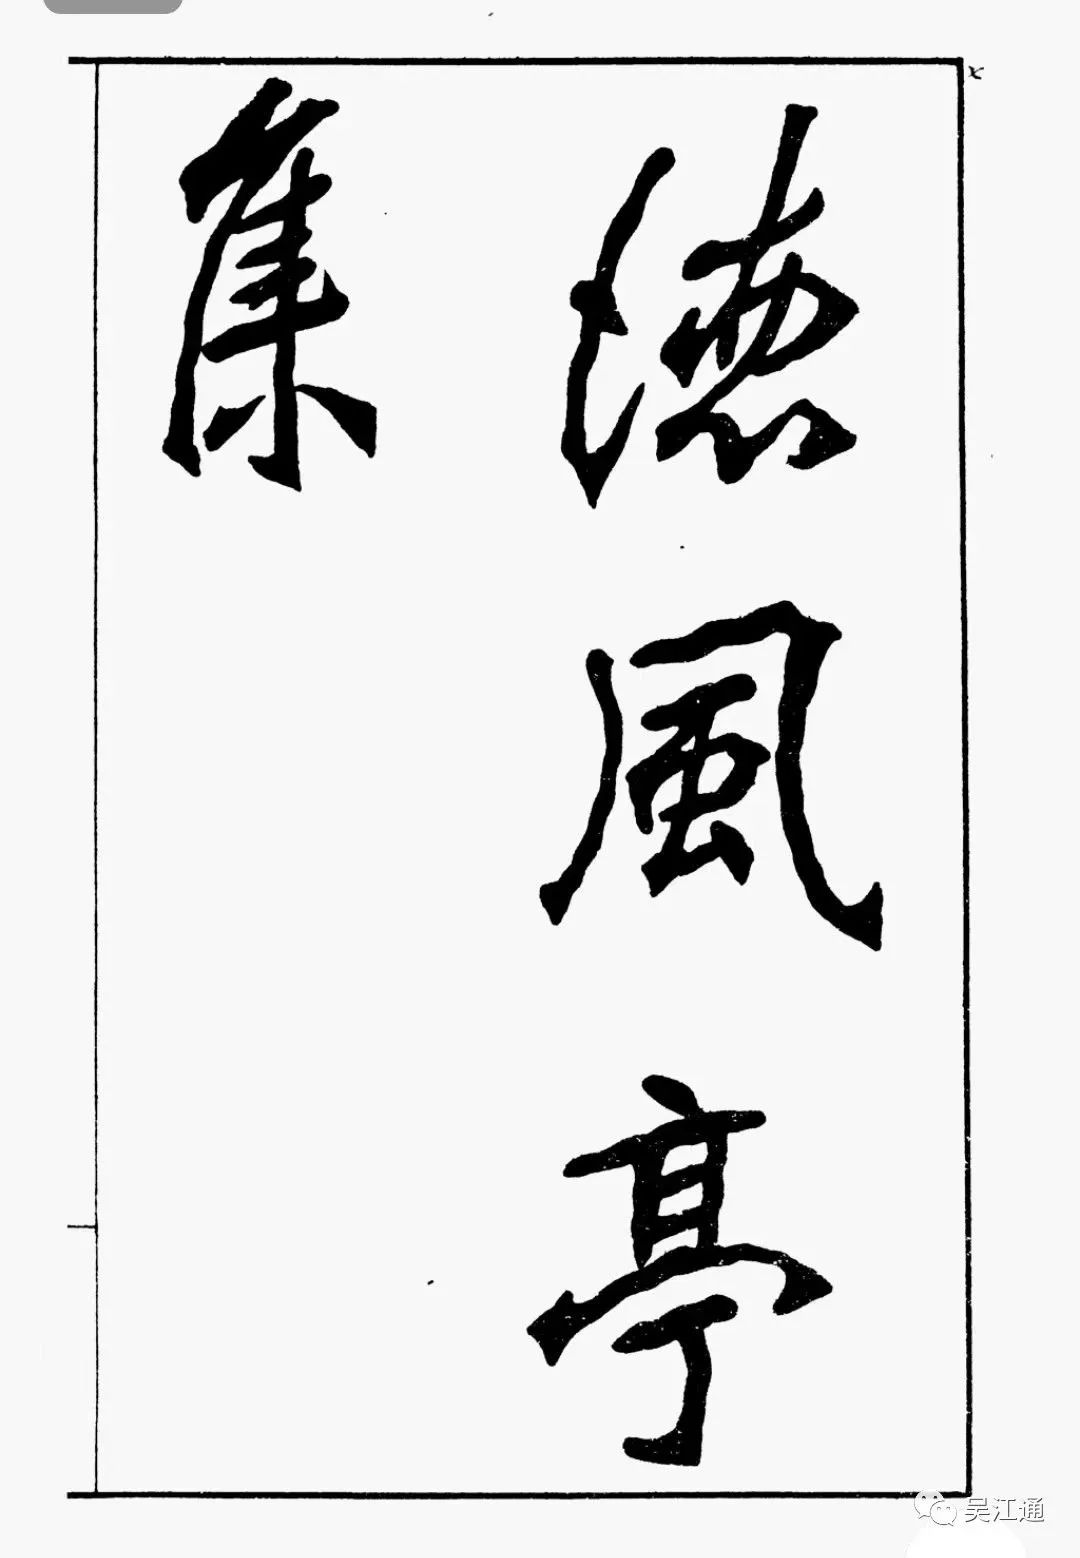 德風亭
集
吴江通